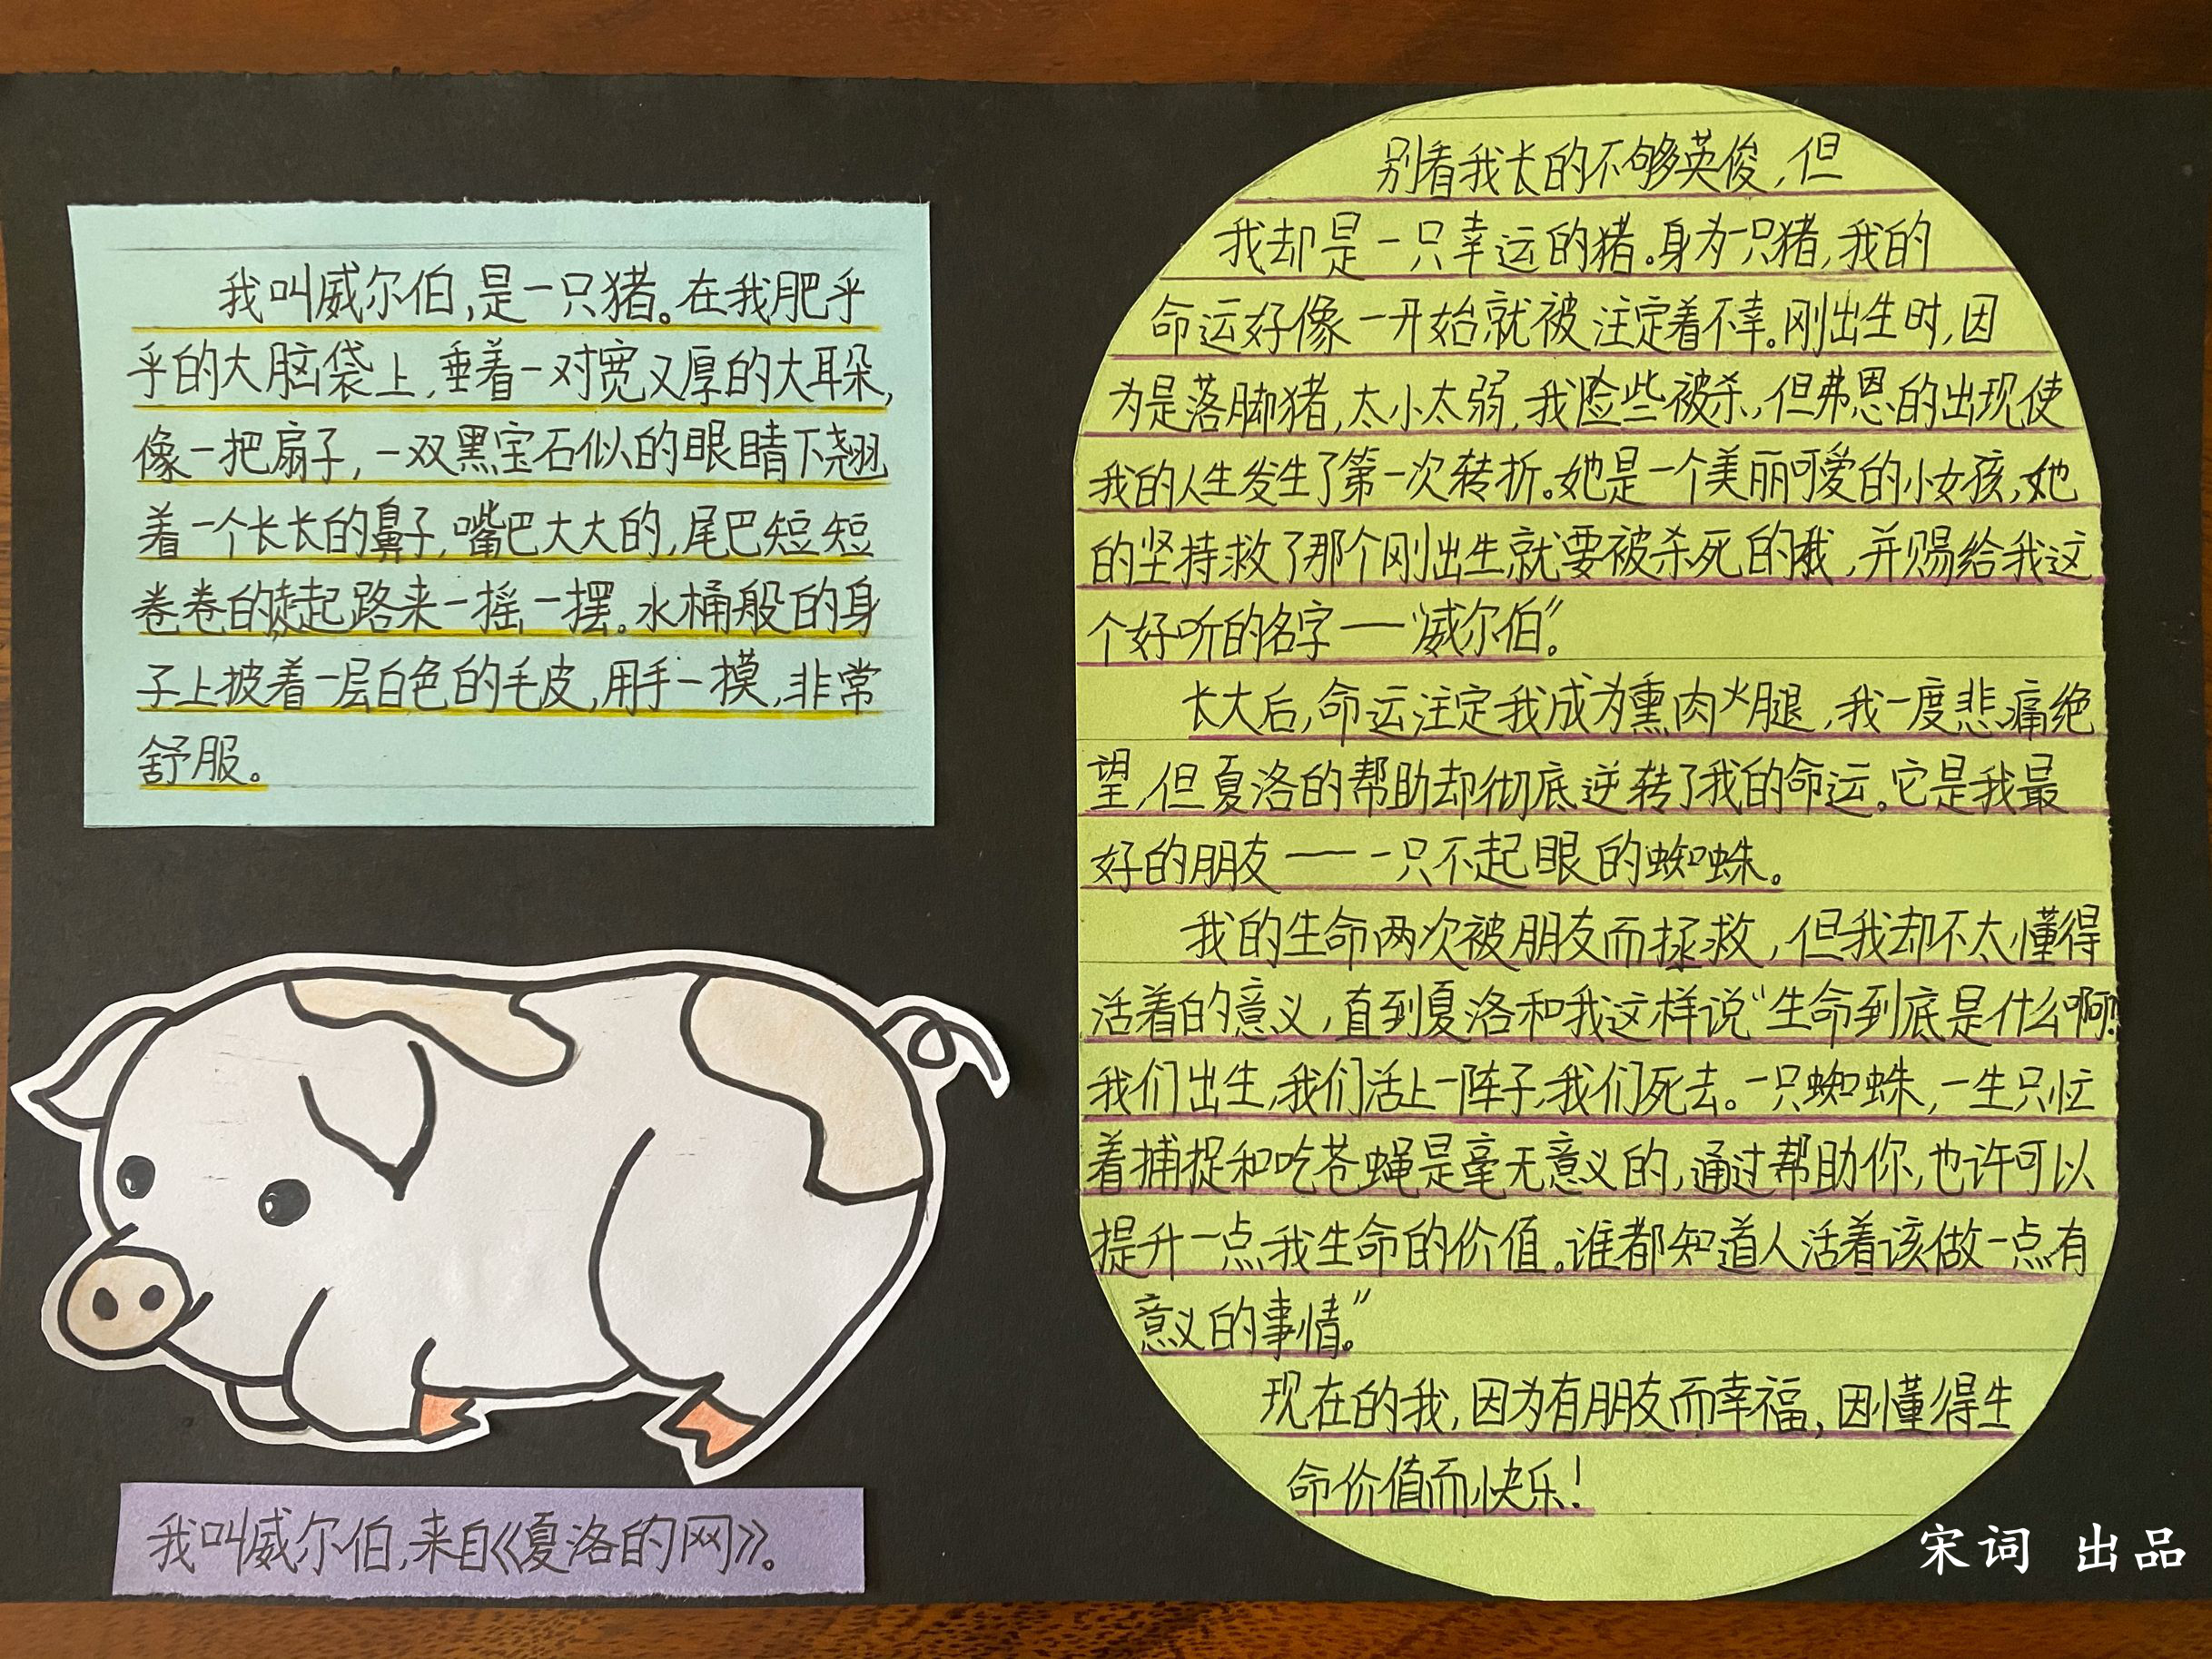 我叫威尔伯,是一只猪。在我肥乎
乎的大脑袋上,垂着一对宽又厚的大耳朵,
像一把扇子,一双黑宝石似的眼睛下翘
着一个长长的鼻子,嘴巴大大的,尾巴短短
卷卷的,走起路来一摇一摆。水桶般的身
子上披着一层白色的毛皮,用手一摸,非常
舒服。
我叫威尔伯,来自《夏洛的网》。
别看我长的不够英俊,但
我却是一只幸运的猪。身为一只猪,我的
命运好像一开始就被注定着不幸。刚出生时,因
为是落脚猪,太小太弱,我险些被杀,但弗恩的出现使
我的人生发生了第一次转折。她是一个美丽可爱的小女孩,她
的坚持救了那个刚出生就要被杀死的我,并赐给我这
个好听的名字——“威尔伯”。
长大后,命运注定我成为熏肉火腿,我一度悲痛绝
望,但夏洛的帮助却彻底逆转了我的命运。它是我最
好的朋友——一只不起眼的蜘蛛。
我的生命两次被朋友而拯救,但我却不太懂得
活着的意义,直到夏洛和我这样说“生命到底是什么啊!
我们出生,我们活上一阵子,我们死去。一只蜘蛛,一生只忙
着捕捉和吃苍蝇是毫无意义的,通过帮助你,也许可以
提升一点我生命的价值。谁都知道人活着该做一点有
意义的事情。”
现在的我,因为有朋友而幸福,因懂得生
命价值而快乐!
宋词 出品